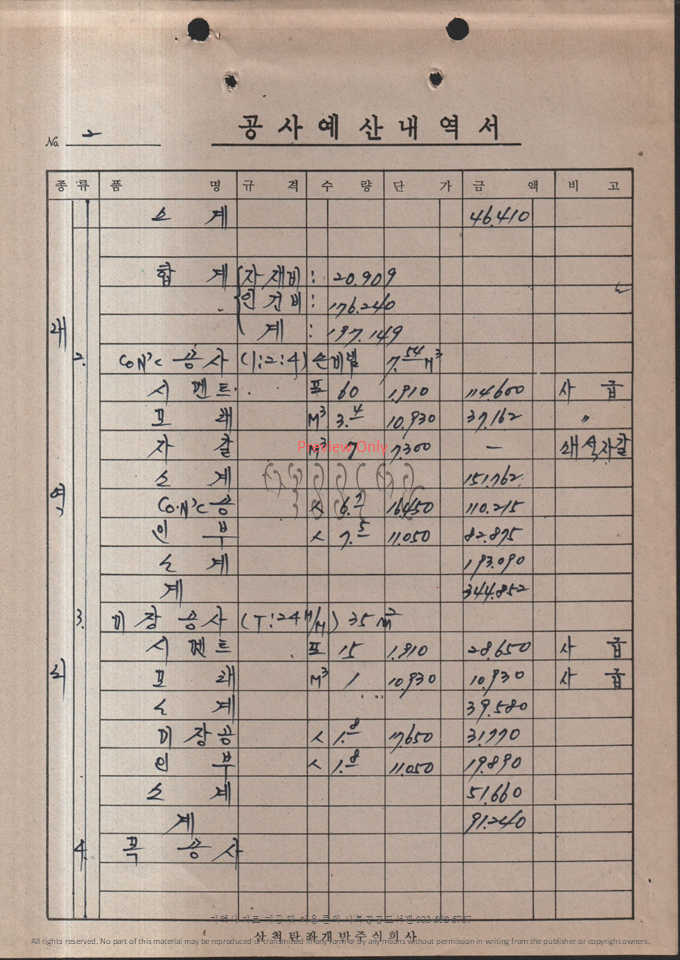 공사예산내역서
No. 2
종류 품명 규격 수량 단가 금액 비고
소계 46.410
합계 자재비 : 20.909
인건비 : 176.240
계 : 197.149
내
2. CoN'c 공사 (1:2:4) 손비빔 7.54 M³
시멘트 포 60 1.910 114.600 사급
모래 M³ 3.4 10.930 37.162 〃
자갈 M³ 7 7.300 — 쇄석자갈
Preview Only
소계 151.762
역
Co.N'c 공 人 6.7 16.450 110.215
인부 人 7.5 11.050 82.875
소계 193.090
계 344.852
3. 미장공사 (T:24M/M) 35 m²
시멘트 포 15 1.910 28.650 사급
모래 M³ 1 10.930 10.930 사급
소계 39.580
미장공 人 1.8 17.650 31.770
인부 人 1.8 11.050 19.890
소계 51.660
계 91.240
4. 목공사
삼척탄좌개발주식회사
All rights reserved. No part of this material may be reproduced or transmitted in any form or by any means without permission in writing from the publisher or copyright owners.